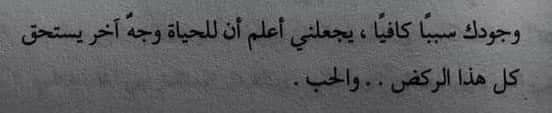 وجودك سببًا كافيًا ، يجعلني أعلم أن للحياة وجهٌ آخر يستحق
كل هذا الركض . . والحب .